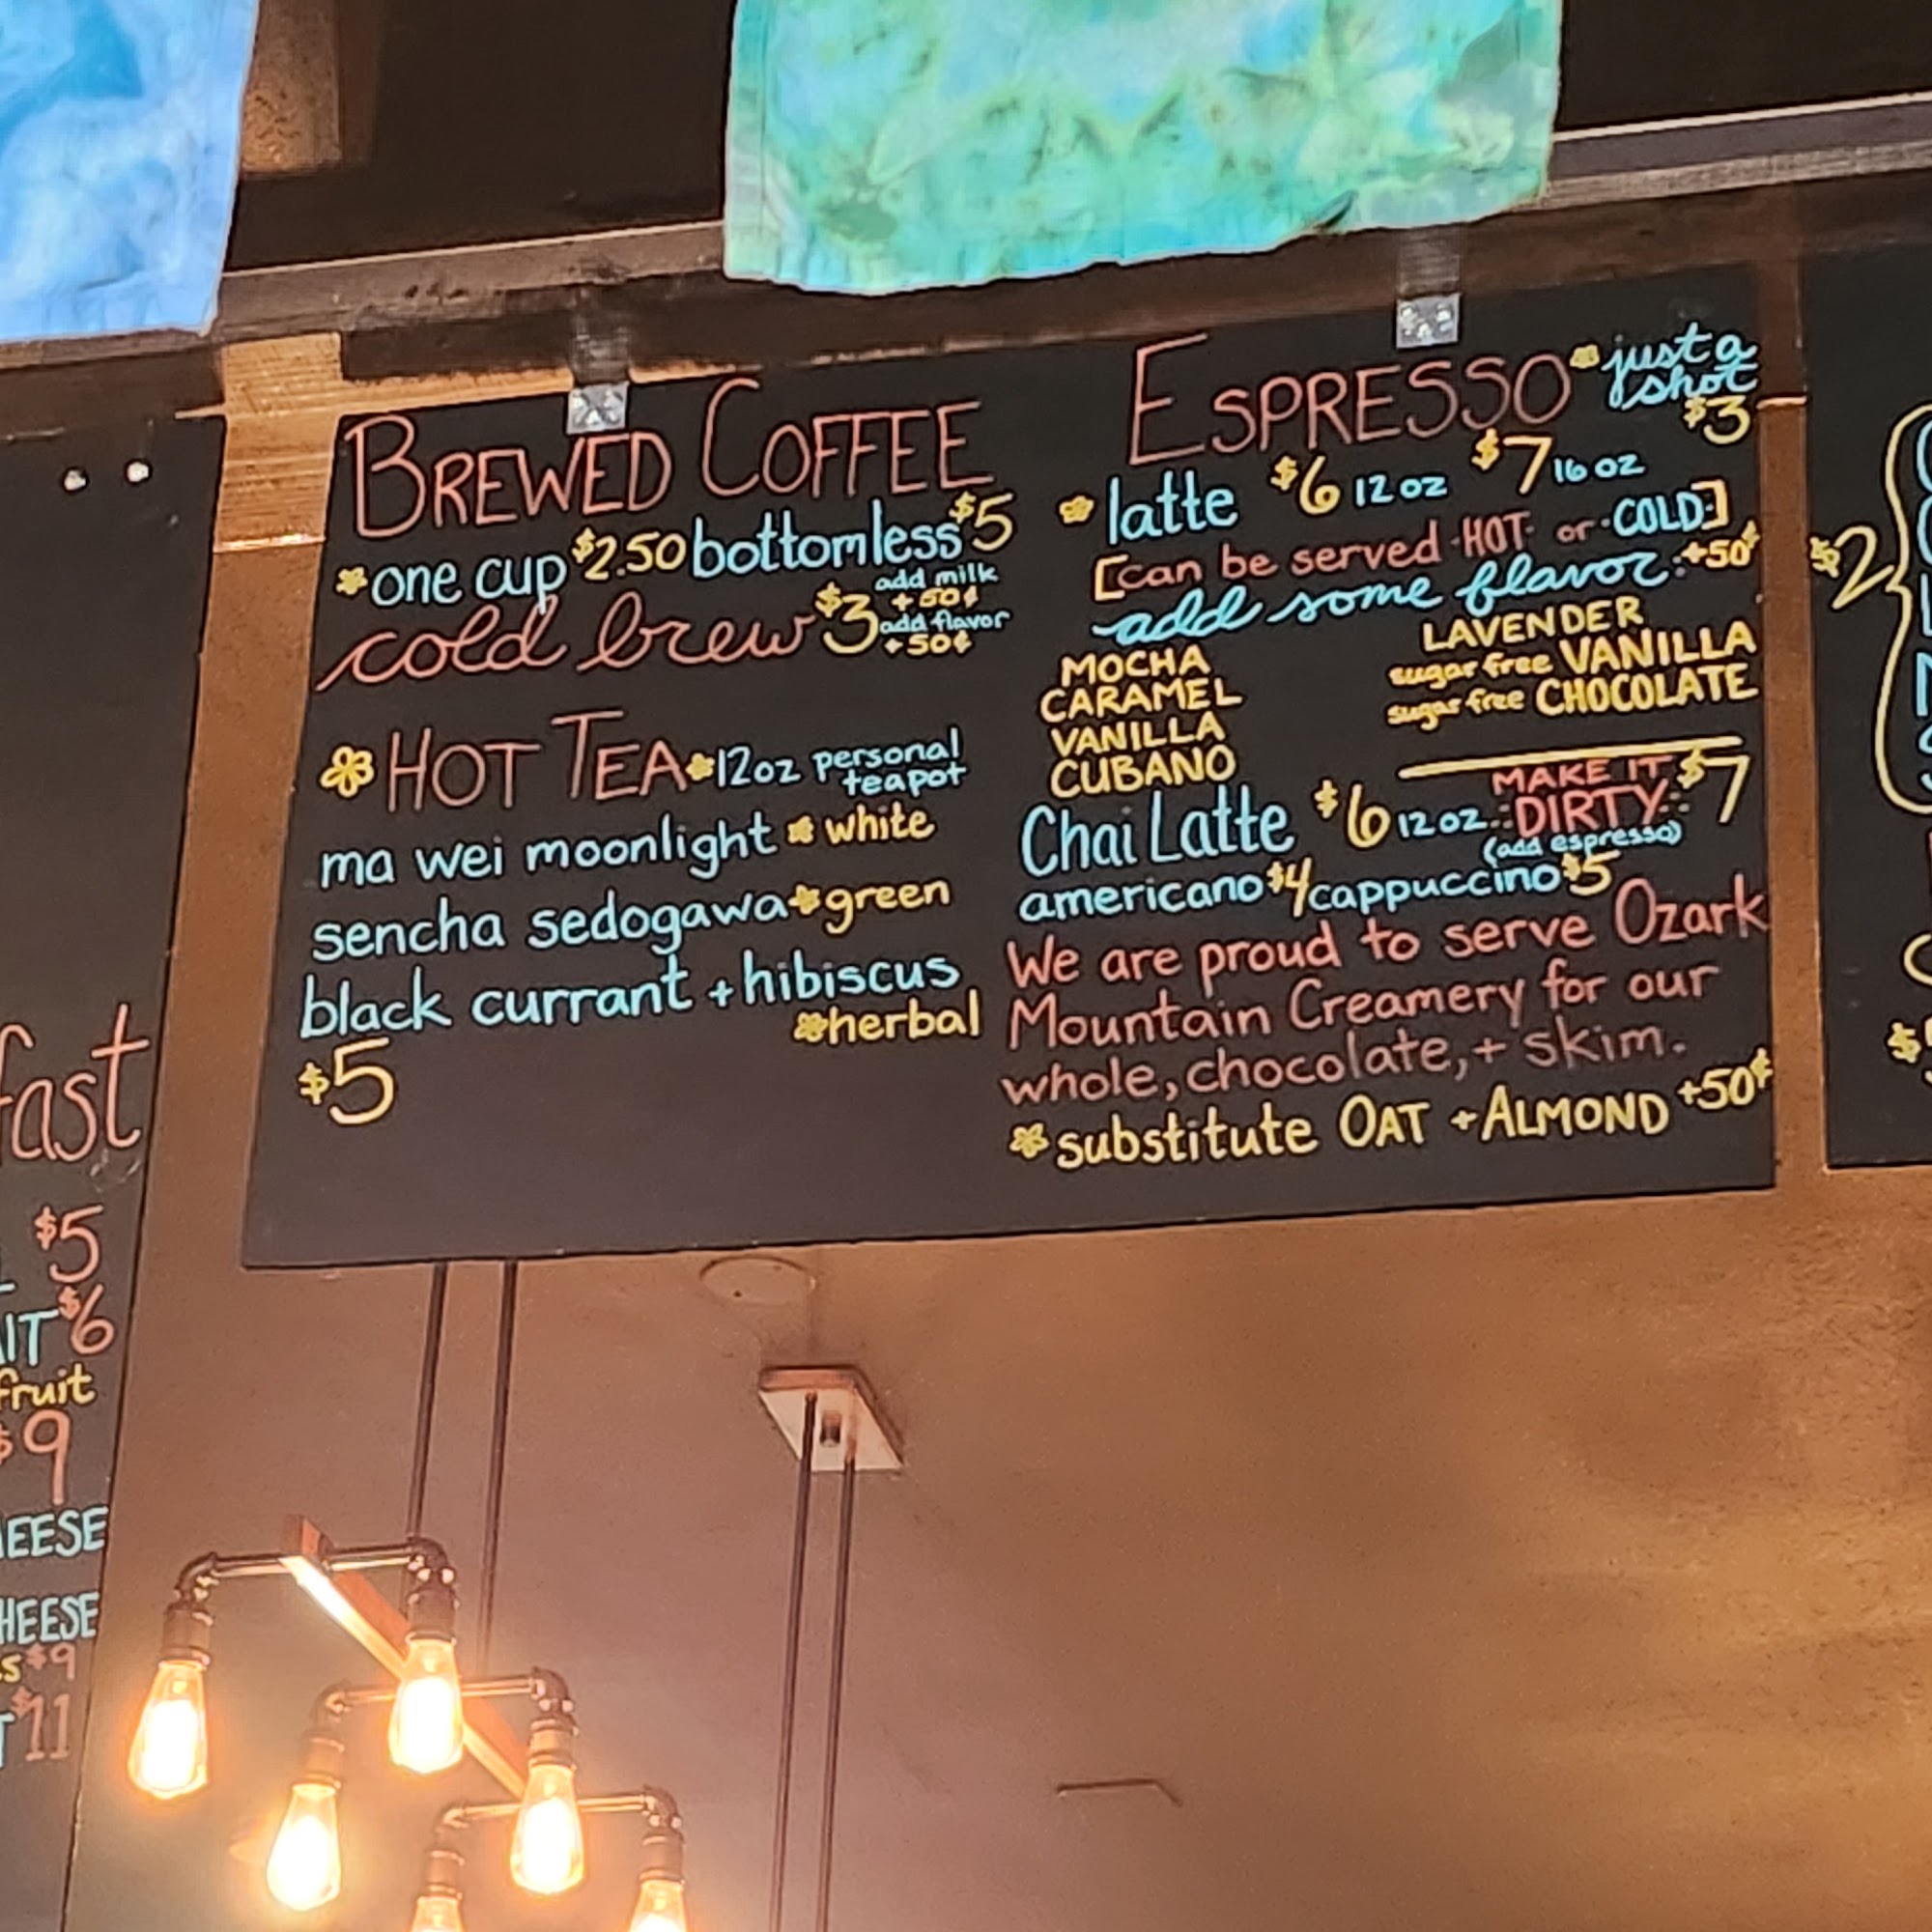 BREWED COFFEE
one cup $2.50 bottomless $5
cold brew $3 add milk +50¢
add flavor +50¢
HOT TEA 12oz personal teapot
ma wei moonlight white
sencha sedogawa green
black currant + hibiscus
herbal
$5
ESPRESSO just a shot $3
latte $6 12 oz $7 16 oz
[can be served HOT or COLD]
add some flavor: +50¢
MOCHA
CARAMEL
VANILLA
CUBANO
LAVENDER
sugar free VANILLA
sugar free CHOCOLATE
Chai Latte $6 12 oz MAKE IT DIRTY $7
(add espresso)
americano $4 cappuccino $5
We are proud to serve Ozark
Mountain Creamery for our
whole, chocolate, + skim.
substitute OAT + ALMOND +50¢
fast
$5
$6
fruit
$9
$9
$11
$2